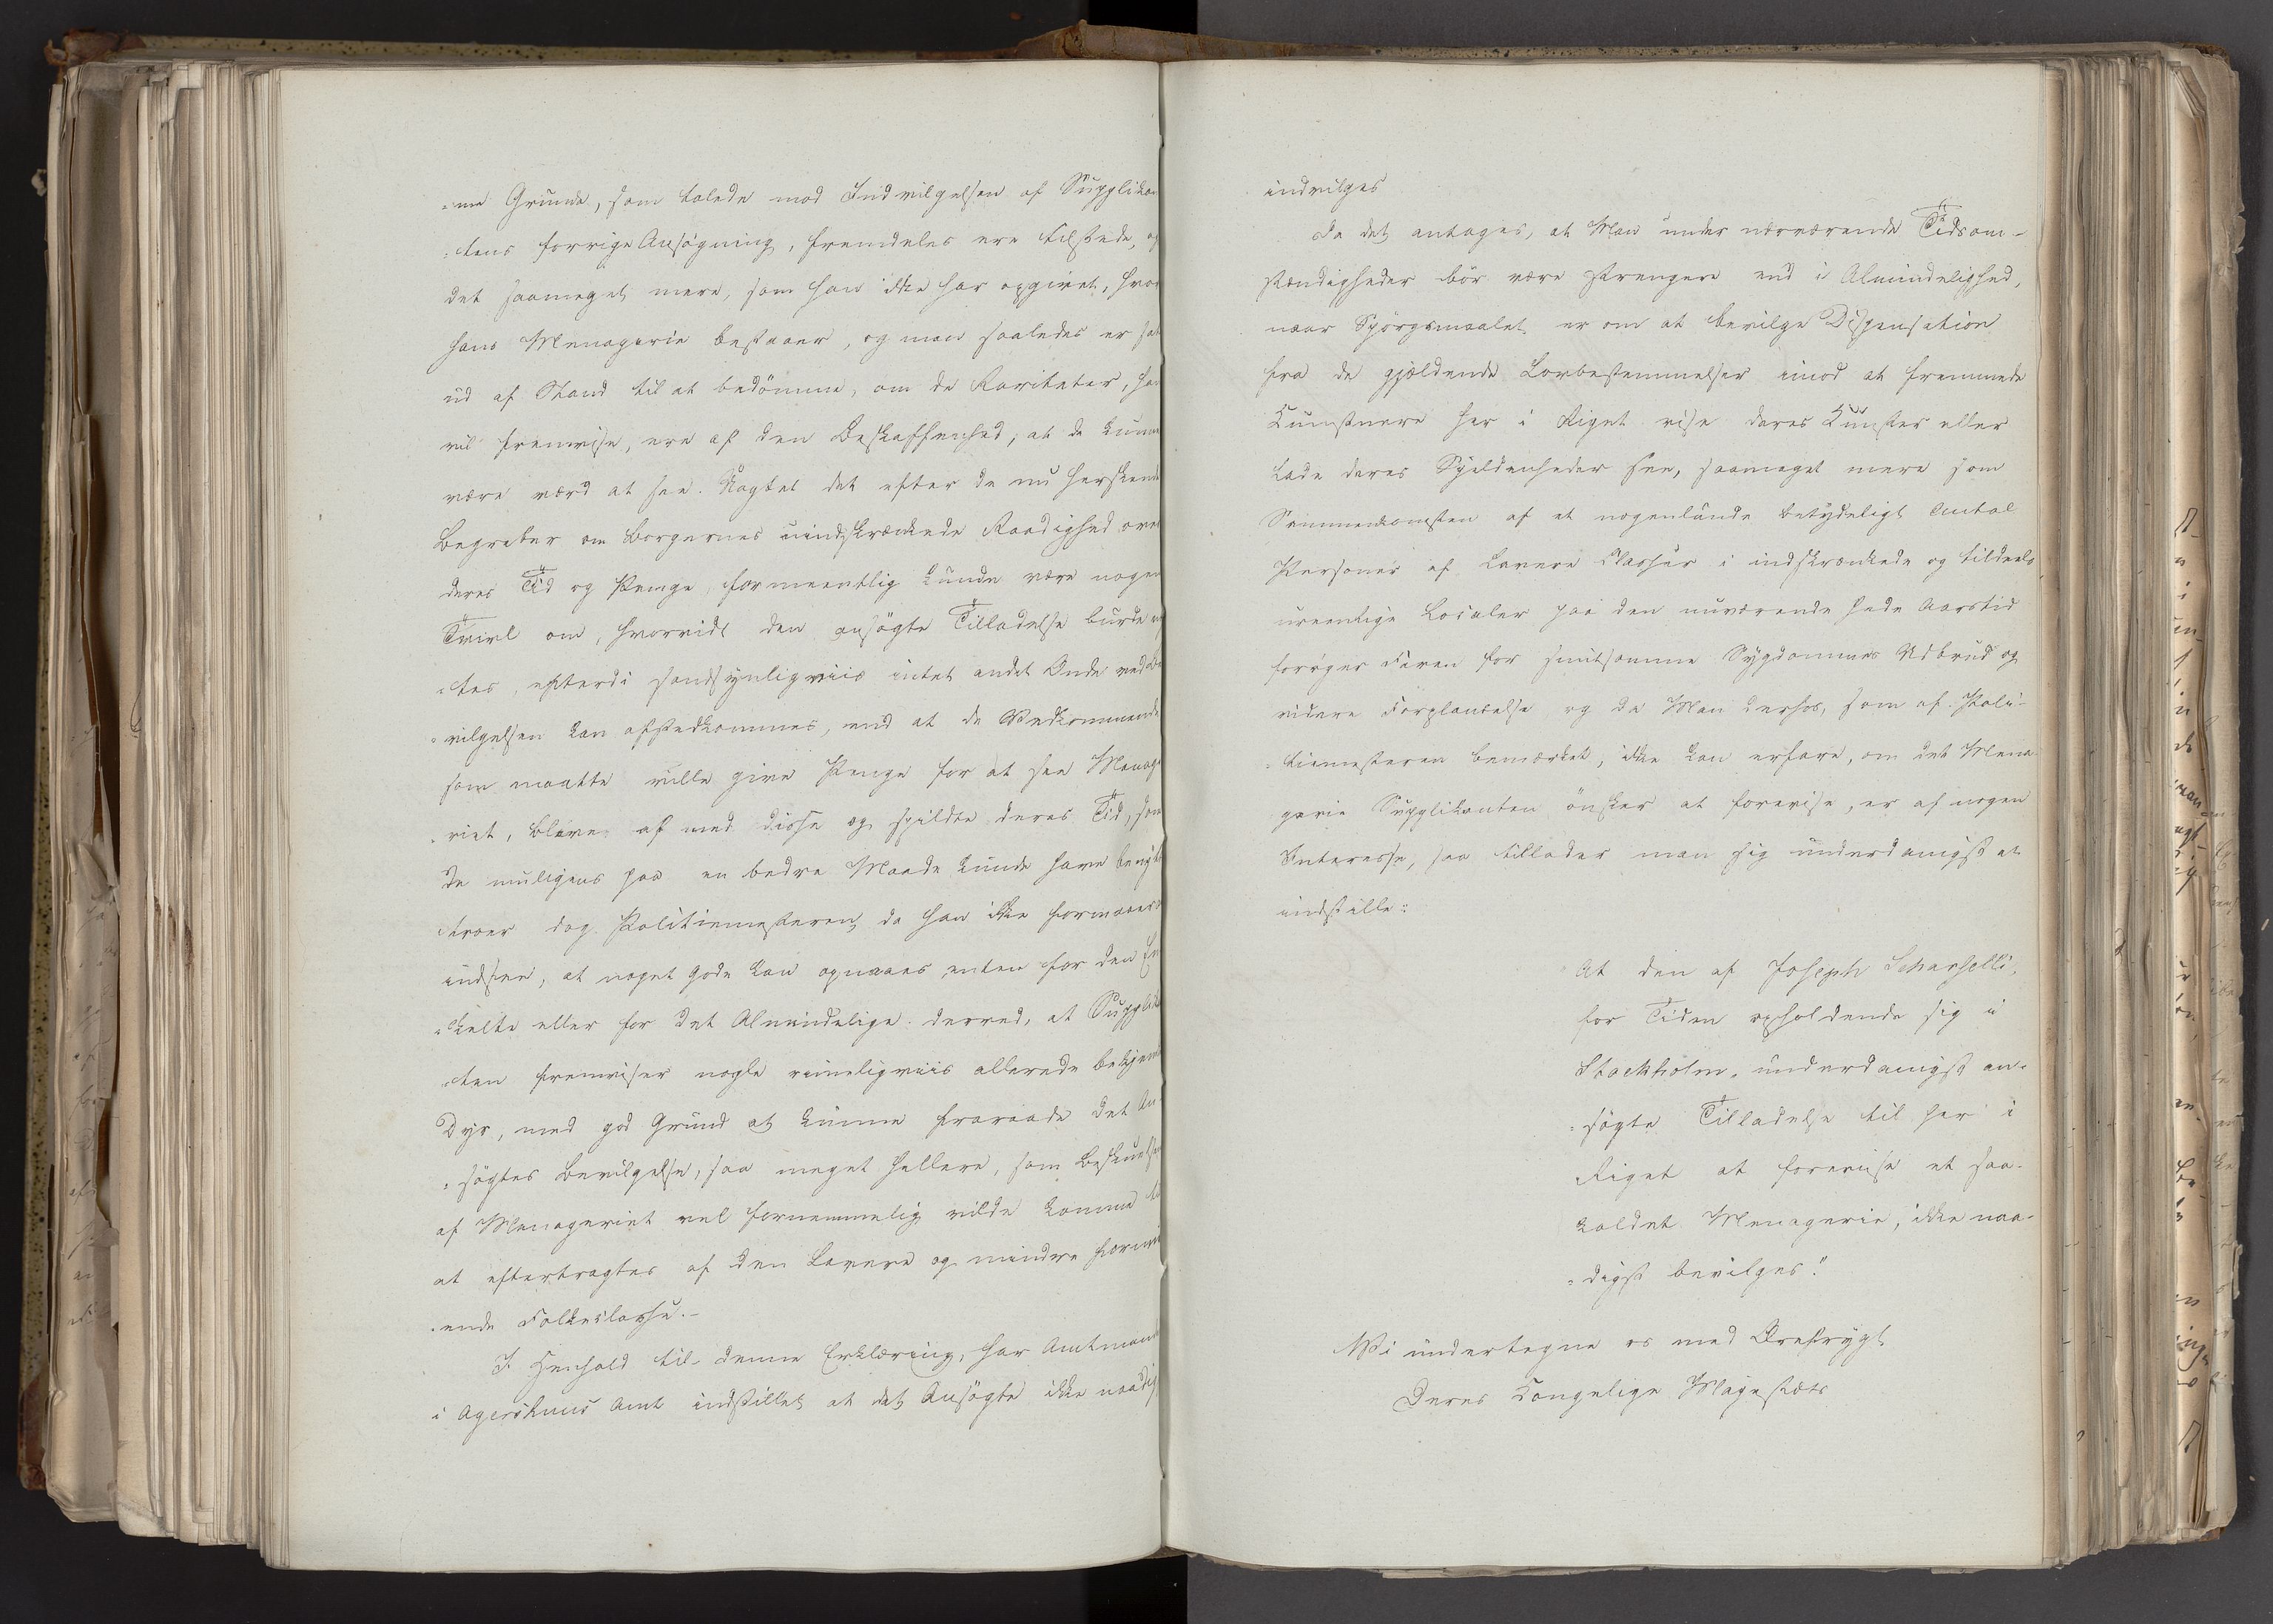 "me Grunde, som talede mod Indvilgelsen af Supplikan
"tens forrige Ansögning, fremdeles ere tilstede, og
det saameget mere, som han ikke har opgivet, hvor
hans Menagerie bestaaer, og man saaledes er sat
ud af Stand til at bedömme, om de Rariteter, han
vil fremvise, ere af den Beskaffenhed, at de kunne
være værd at see. Uagtet det efter de nu herskende
Begreber om Borgernes uindskrænkede Raadighed over
deres Tid og Penge, formeentlig kunde være nogen
Tvivl om, hvorvidt den ansögte Tilladelse burde
"tes, efterdi sandsynligviis intet andet Onde ved Be
"vilgelsen kan afstedkommes, end at de Vedkommende
som maatte ville give Penge for at see Menage
"riet, bleve af med disse og spildte deres Tid, som
de muligens paa en bedre Maade kunde have benyttet
troer dog Politiemesteren, da han ikke formaaer
indsee, at noget Gode kan opnaaes enten for den En
"kelte eller for det Almindelige derved, at Supplikan
"ten fremviser nogle rimeligviis allerede bekjendte
Dyr, med god Grund at kunne fraraade det An
"sögtes Bevilgelse, saa meget hellere, som Beskuelsen
af Menageriet vel fornemmelig vilde komme til
at eftertragtes af den lavere og mindre formu
"ende Folkeclasse.-
I Henhold til denne Erklæring, har Amtmanden
i Agershuus Amt indstillet at det Ansögte ikke naadigst
indvilges
Da det antages, at Man under nærværende Tidsom-
stændigheder bör være strengere end i Almindelighed,
naar Spörgsmaalet er om at bevilge Dispensation
fra de gjældende Lovbestemmelser imod at fremmede
Kunstnere her i Riget vise deres Kunster eller
lade deres Sjeldenheder see, saameget mere som
Sammenkomsten af et nogenlunde betydeligt Antal
Personer af lavere Classer i indskrænkede og tildeels
ureenlige Localer paa den nuværende hede Aarstid
forøger Faren for smitsomme Sygdommes Udbrud og
videre Forplantelse og da Man derhos, som af Poli-
"tiemesteren bemærket, ikke kan erfare, om det Mena-
gerie Supplikanten önsker at forevise, er af nogen
Interesse, saa tillader man sig underdanigst at
indstille:
At den af Joseph Scharselli,
for Tiden opholdende sig i
Stockholm, underdanigst an-
"sögte Tilladelse til her i
Riget at forevise et saa-
kaldet Menagerie, ikke naa-
"digst bevilges."
Vi undertegne os med Ærefrygt
Deres Kongelige Majestæts